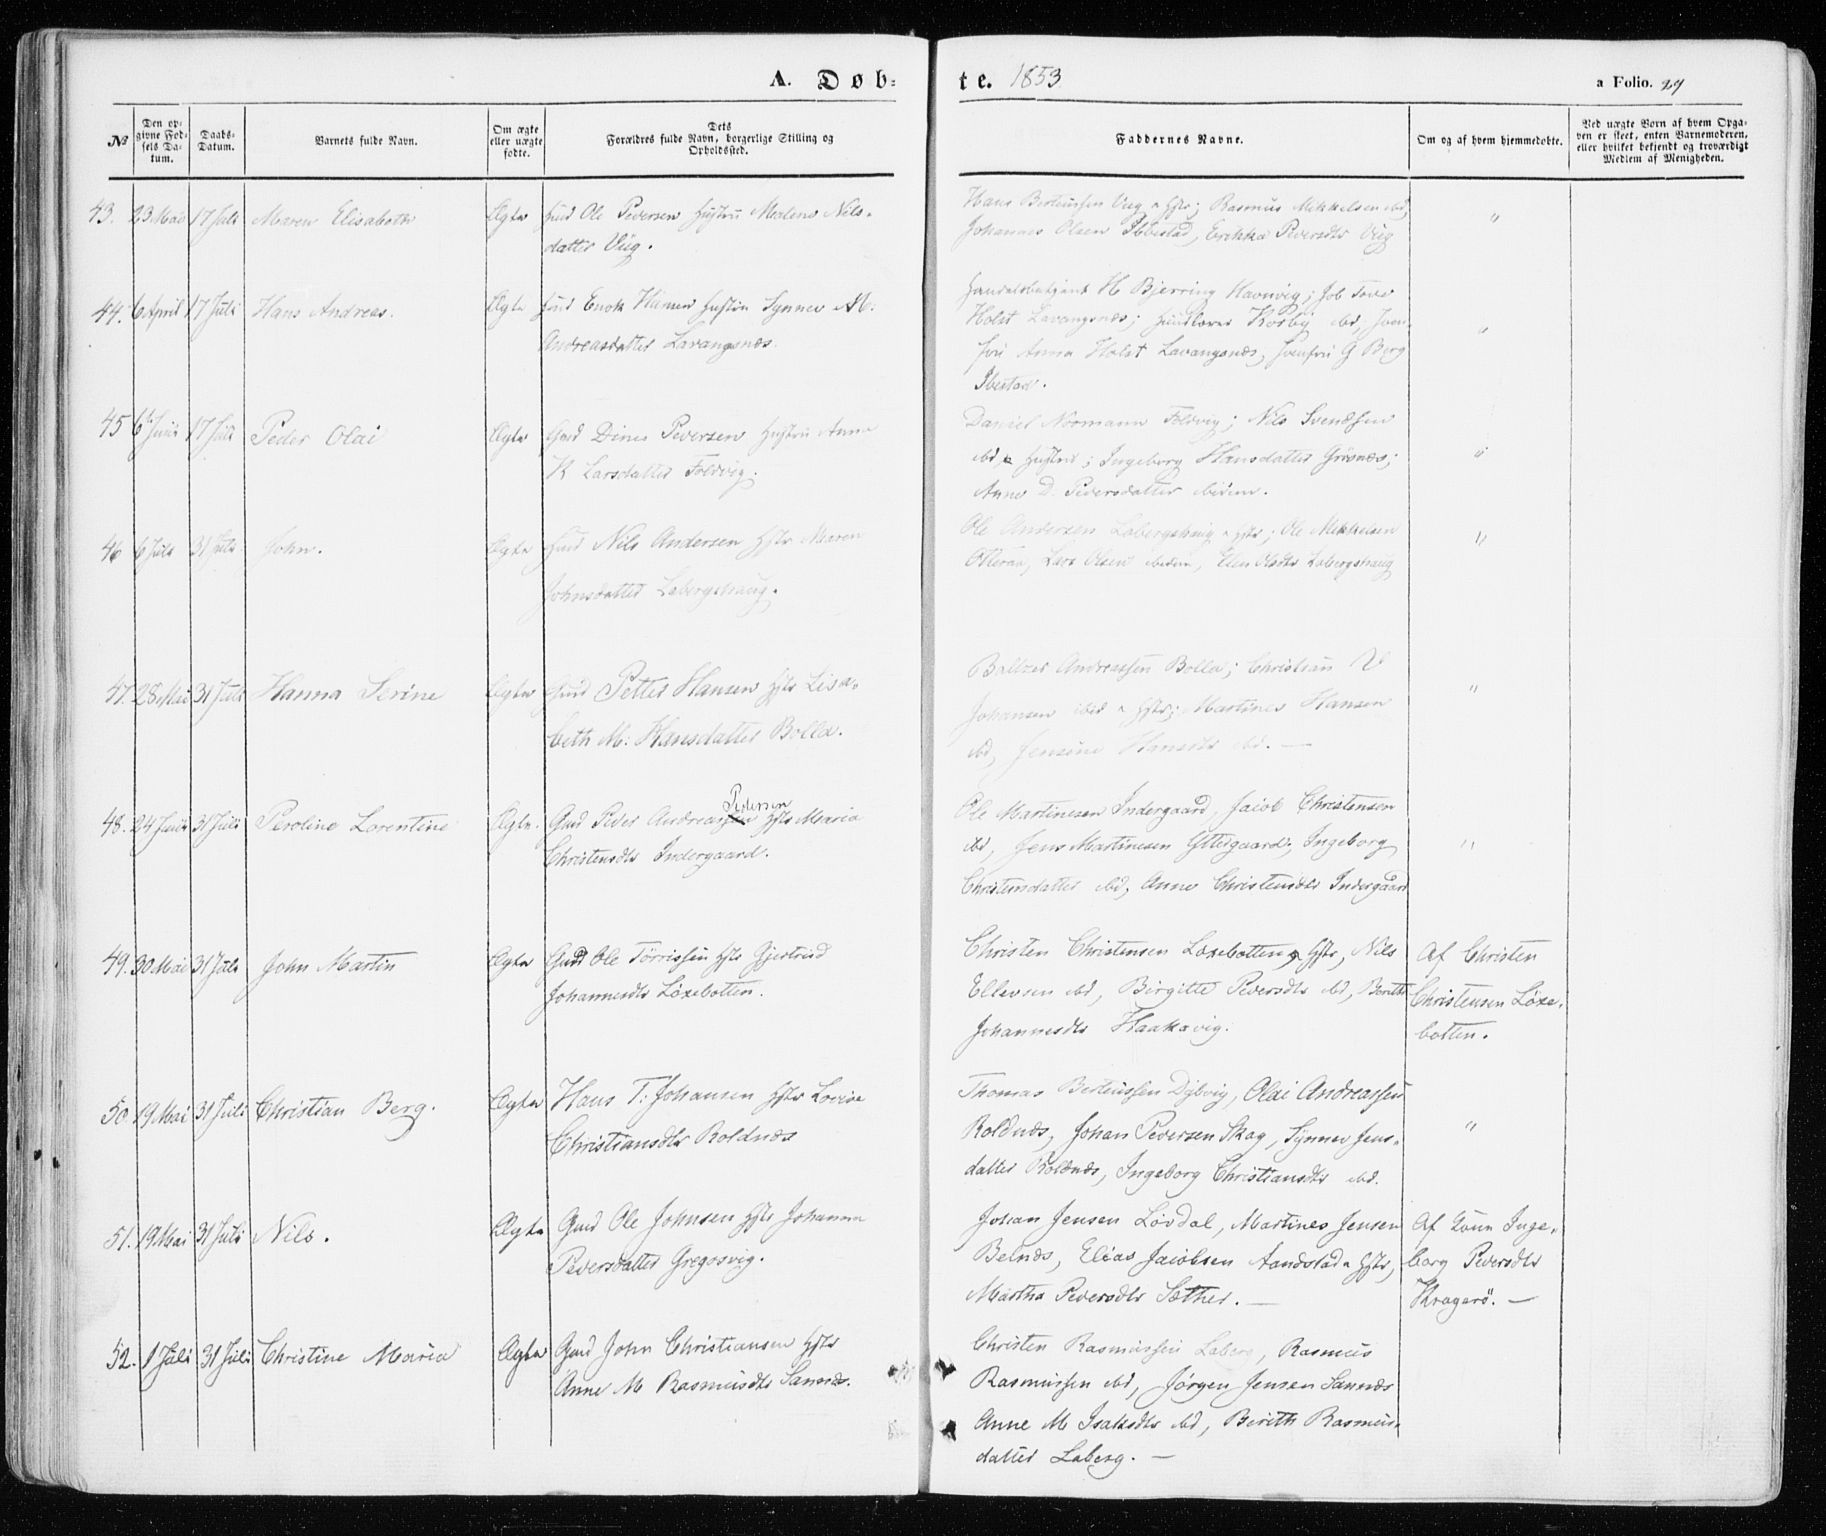 A. Døb-
te. 1853
a Folio. 29
No
Den op-
givne Fød-
sels Da-
tum.
Daabs-
Datum.
Barnets fulde Navn.
Om ægte
eller uægte
fødte.
Dets
Forældres fulde Navn, borgerlige Stilling og
Opholdssted.
Faddernes Navne.
Om og af hvem hjemmedøbte.
Ved uægte Barn af hvem Opga-
ven er skeet, enten Barnemoderen,
eller hvilket bekjendt og troværdigt
Medlem af Menigheden.
43. 23 Mai 17 Juli Maren Elisabeth Ægte Ole Pedersen Hustru Malene Nils-
datter Vug.
Hans Berteussen Vug Hstr; Rasmus Mikkelsen ibd,
Johannes Olsen Ibbestad, Erikka Pedersdtr Vug
"
44. 6 April 17 Juli Hans Andreas. Ægte Enok Hustru Synnev M:
Andreasdatter Lavangsnes.
H Bjerring Havnvig; Job Tove
Holst Lavangsnes; Korby ibd, Jom-
fru Anna Holst Lavangsnes, Jomfru G Berg
Ibestad.
"
45 6 Juni 17 Juli Peder Olai Ægte Gmd Dines Pedersen Hustru Anne
K Larsdatter Foldvig.
Daniel Normann Foldvig; Nils Svendsen
ibd & Hustru; Ingeborg Hansdatter Grovnes;
Anne D. Pedersdatter ibidem.
"
46 6 Juli 31 Juli John. Ægte Nils Andersen Hstr Maren
Johnsdatter Labergshaug.
Ole Andersen Labergshaug Hstr; Ole Mikkelsen
Otteraa, Lars Olsen ibidem, Elen Olsdtr Labergshaug
"
47. 28 Mai 31 Juli Hanna Serine Ægte Petter Hansen Hstr Lisa-
beth M: Hansdatter Bolla.
Baltzer Andreassen Bolla; Christian
Johansen ibid Hstr; Martines Hansen
ibd, Jensine Hansdtr ibd. —
"
48. 24 Juni 31 Juli Peroline Lorentine Ægte. Gmd Peder Andreassen Pedersen Hstr Maria
Christensdtr Indergaard.
Ole Martinesen Indergaard, Jacob Christensen
ibd, Jens Martinesen Yttergaard; Ingeborg
Christensdatter ibd, Anne Christensdtr Indergaard
"
49. 30 Mai 31 Juli John Martin Ægte Gmd Ole Tørrissen Hstr Gjertrud
Johannesdtr Løxebotten.
Christen Christensen Løxebotten & Hstr, Nils
Ellevsen ibd, Birgitte Pedersdtr ibd, Berith
Johannesdtr Haakavig.
Af Christen
Christensen Løxe-
botten.
50. 19 Mai 31 Juli Christian Berg. Ægte Hans T. Johansen Hstr Lovise
Christiansdtr Roldnæs
Thomas Berteussen Dybvig, Olai Andreassen
Roldnæs, Johan Pedersen Skog, Synnev Jens-
datter Roldnæs, Ingeborg Christiansdtr ibd.
"
51. 19 Mai 31 Juli Nils. Ægte Gmd Ole Johnsen Hstr Johanna
Pedersdatter Gregosvig.
Johan Jensen Løvdal, Martines Jensen
Belnæs, Elias Jacobsen Aandstad Hstr,
Martha Pedersdtr Sæther. —
Af Inge-
borg Pedersdtr
Kragerø. —
52. 1 Juli 31 Juli Christine Maria Ægte Gmd John Christiansen Hstr
Anne M Rasmusdtr Sannæs.
Christen Rasmussen Laberg, Rasmus
Rasmussen ibd, Jørgen Jensen Sannæs
Anne M Isaksdtr ibd, Berith Rasmus-
datter Laberg. —